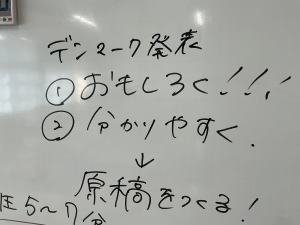 デンマーク発表
① おもしろく!!!
② 分かりやすく.
↓
原稿をつくる!
5〜7分